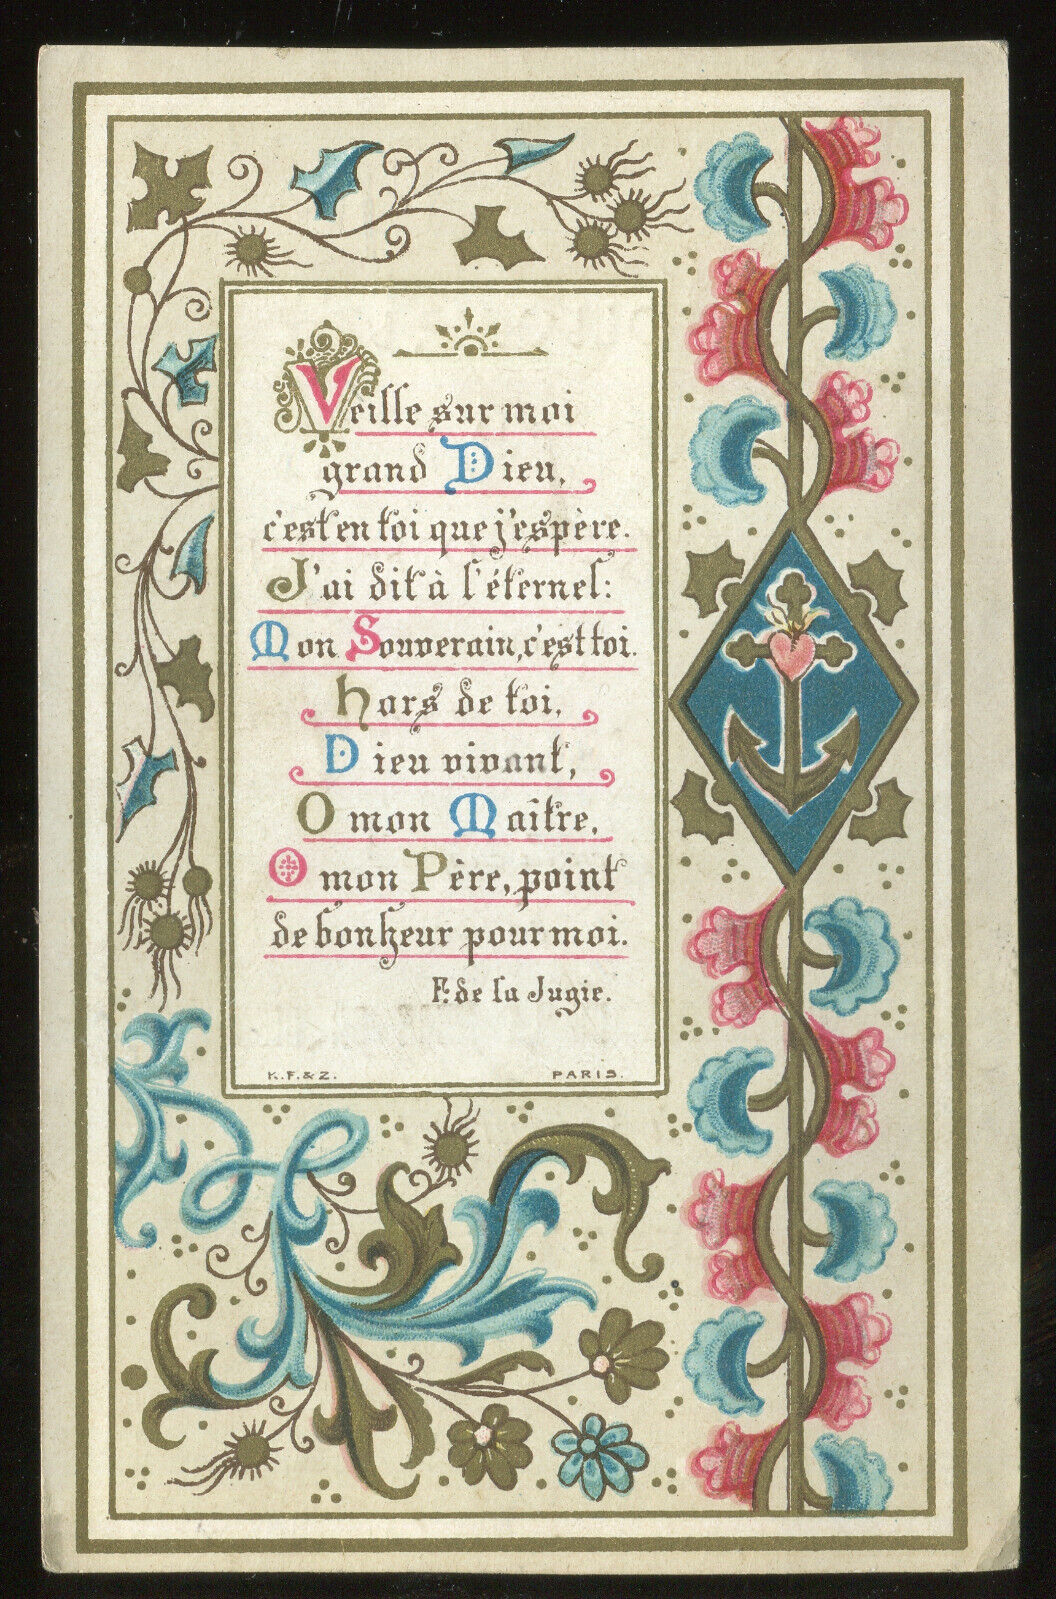 Veille sur moi
grand Dieu,
c'est en toi que j'espère.
J'ai dit à l'éternel:
Mon Souverain, c'est toi.
hors de toi,
Dieu vivant,
O mon Maître,
O mon Père, point
de bonheur pour moi.
F. de la Jugie.
K.F.&Z. PARIS.